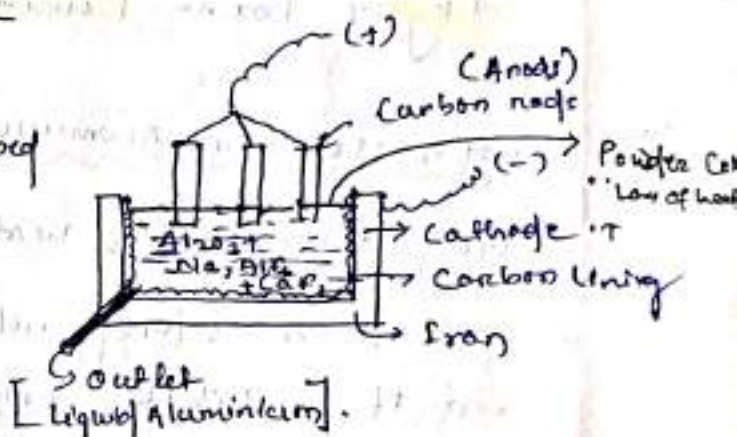 (+)
(Anode)
Carbon rods
(-)
Powder
Loss of heat
Al2O3 +
Na3AlF6
+ CaF2
Cathode
Carbon lining
Iron
Outlet
[Liquid Aluminium].